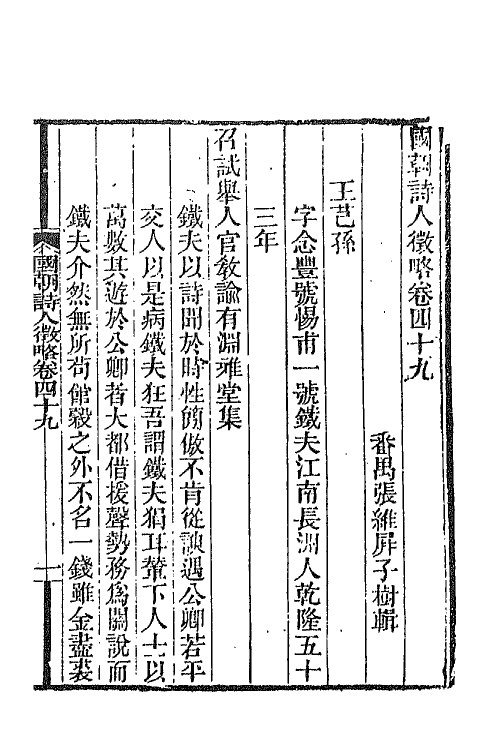 國朝詩人徵略卷四十九
番禺張維屏子樹輯
王芑孫
字念豐號惕甫一號鐵夫江南長洲人乾隆五十
三年
召試舉人官敎諭有淵雅堂集
鐵夫以詩聞於時性簡傲不肯從諛遇公卿若平
交人以是病鐵夫狂吾謂鐵夫狷耳輦下人士以
萬數其遊於公卿者大都借援聲勢務爲關說而
鐵夫介然無所苟館穀之外不名一錢雖金盡裘
國朝詩人徵略卷四十九
一